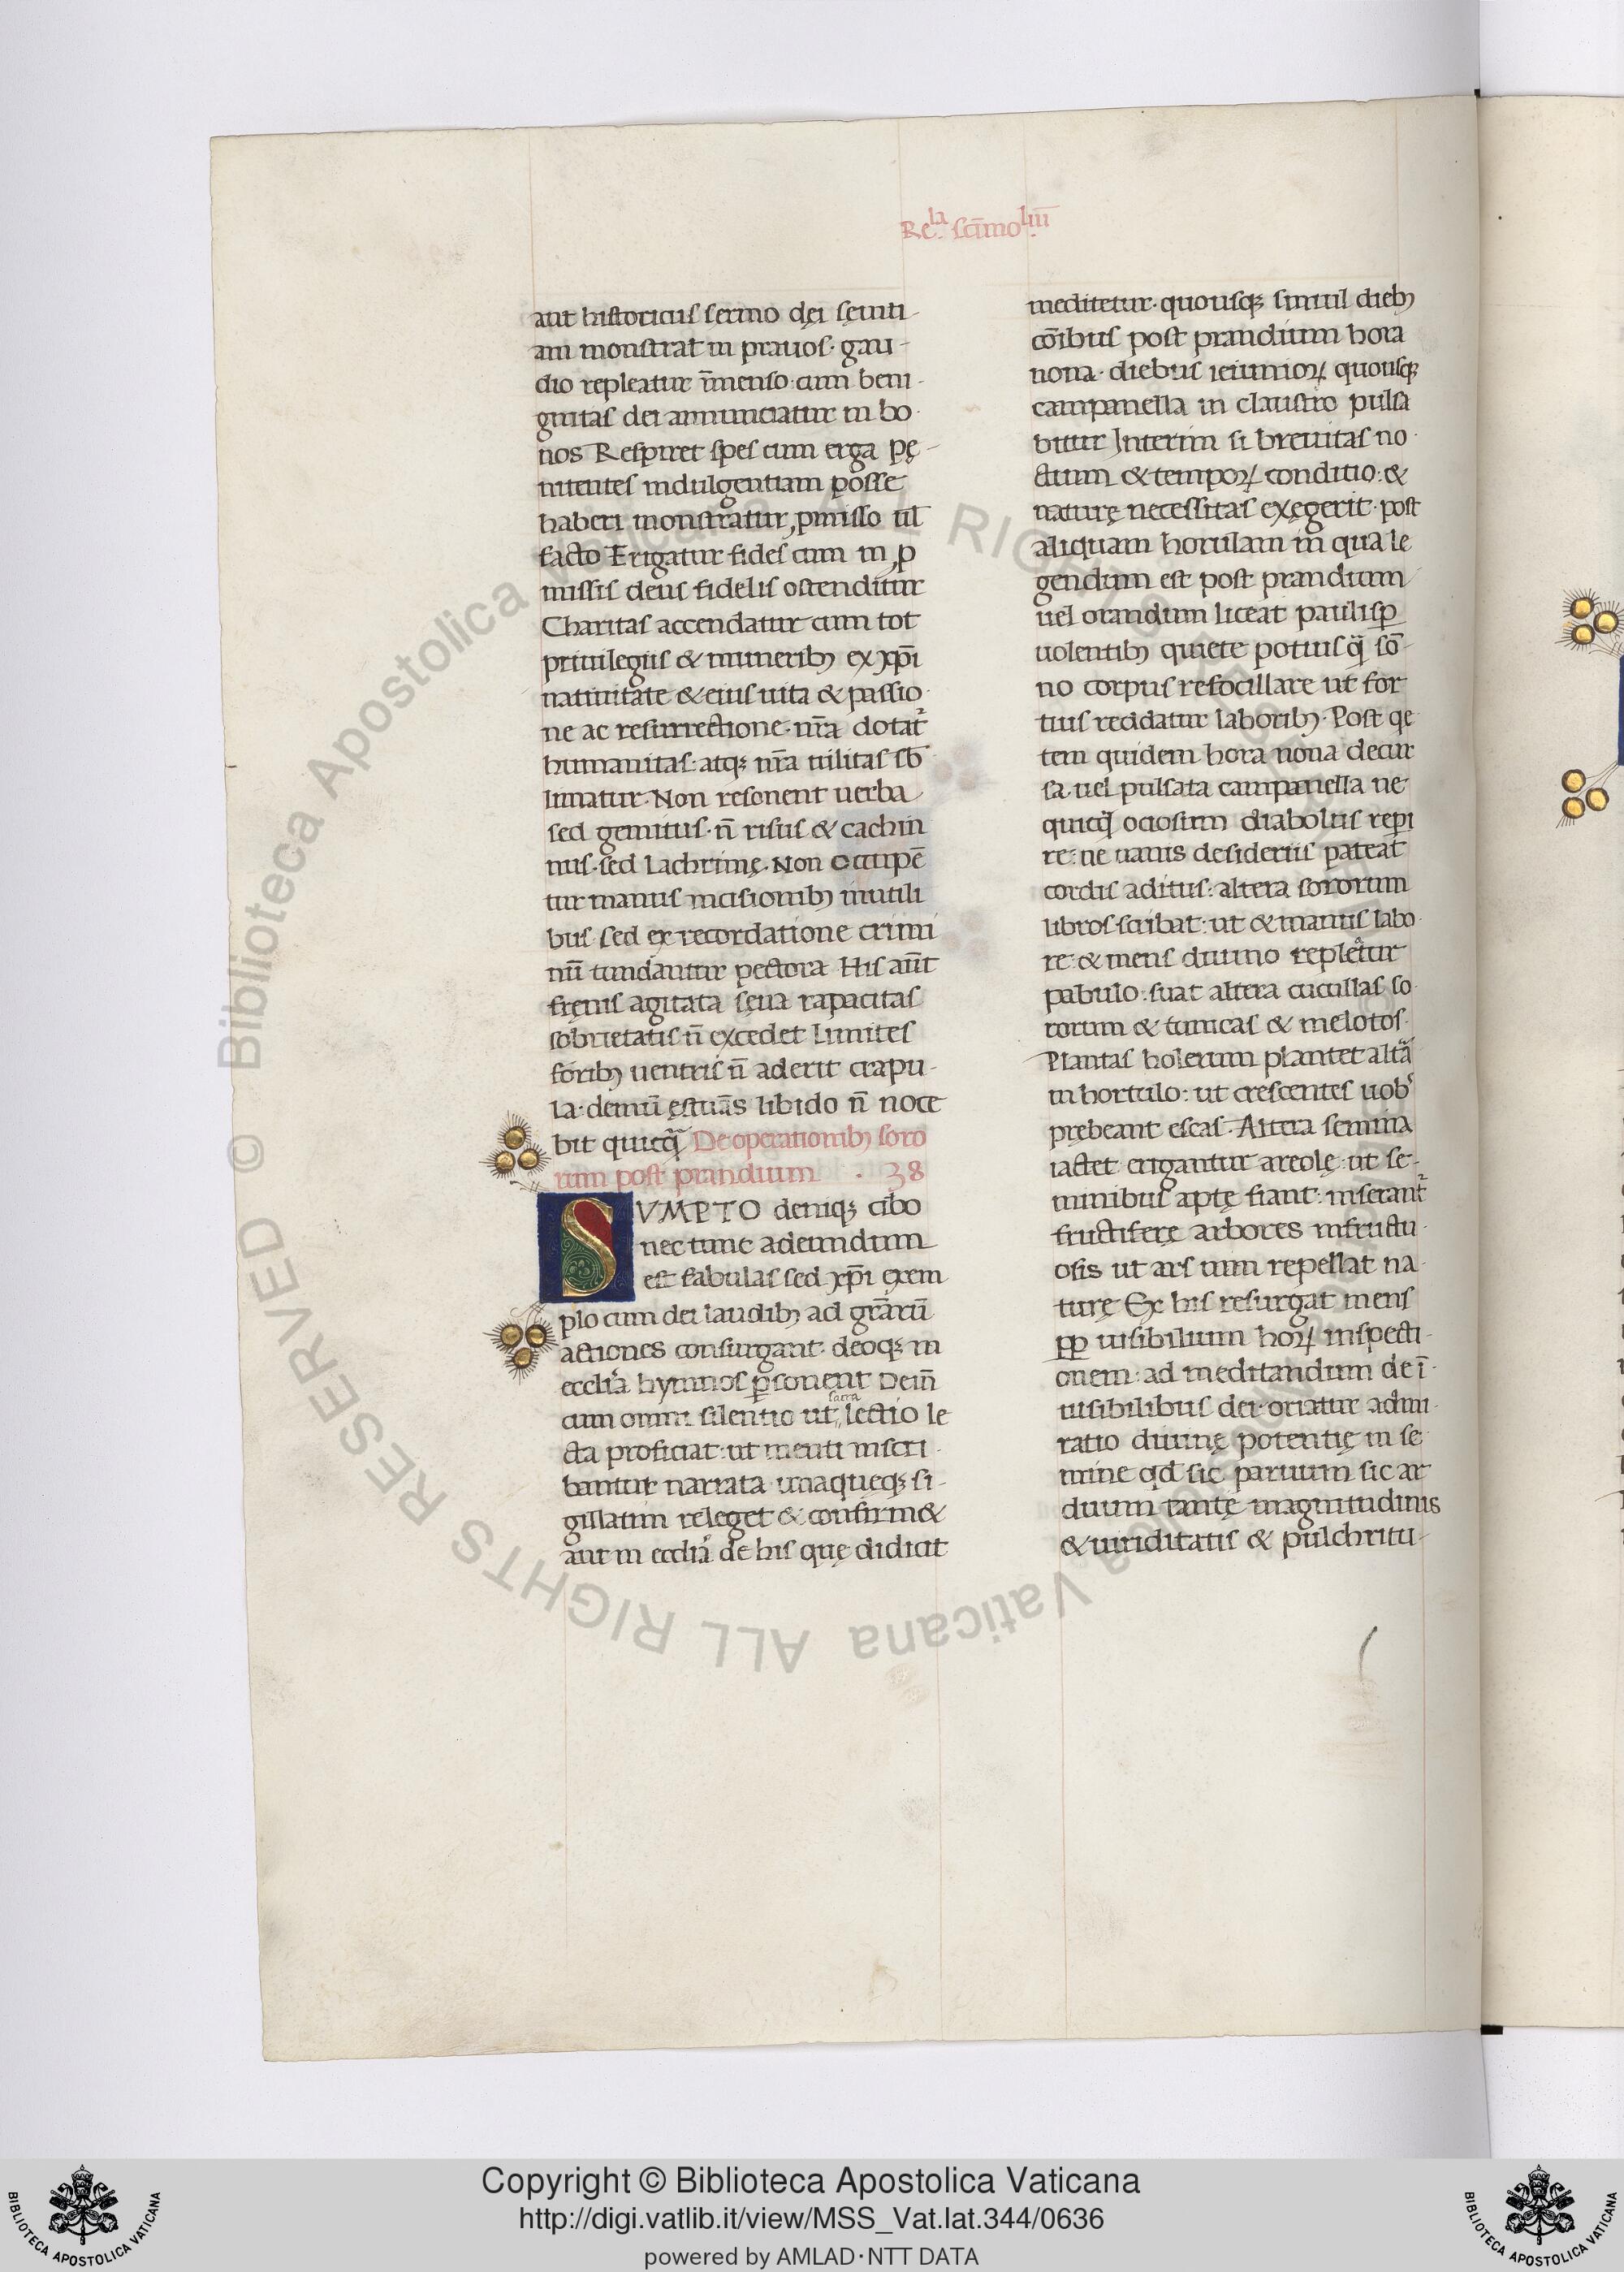 Rela scimo liii
aut historicus sermo dęi sęuiti-
am monstrat in prauos· gau-
dio repleatur īmenso cum beni-
gnitas dei annunciatur in bo-
nos Respiret spes cum erga pę-
nitentes indulgentiam posse
haberi monstratur, pmisso ul̄
facto Erigatur fides cum in p
missis deus fidelis ostenditur
Charitas accendatur cum tot
priuilegiis & munerib; ex xp̄i
natiuitate & eius uita & passio-
ne ac resurrectione· nr̄a dotat
humanitas: atq; nr̄a uilitas sb̄
limatur. Non resonent uerba
sed gemitus· n̄ risus & cachin
nus· sed lachrimę. Non occupē
tur manus incisionib; inutili
bus sed ex recordatione crimi
nū tundantur pectora His aūt
fręnis agitata sęua rapacitas
sobrietatis n̄ excedet limites
forib; uentris n̄ aderit crapu-
la· demū ęstuās libido n̄ noce
bit quicq̄ De operationib; soro
rum post prandium · 38
SVMPTO deniq; cibo
nec tunc adeundum
est fabulas sed xp̄i exem
plo cum dei laudib; ad gr̄arū
actiones consurgant: deoq; in
ecclīa hymnos psonent Dein̄
cum omni silentio ut sacra lectio le
cta proficiat: ut menti inscri-
bantur narrata unaquęq; si-
gillatim releget & confirm&
aut in ecclīa de his quę didicit
meditetur· quousq; simul dieb;
cōibus post prandium hora
nona· diebus ieiunioꝝ quousq;
campanella in claustro pulsa
bitur Interim si breuitas no-
ctium & tempoꝝ conditio: &
naturę necessitas exęgerit· post
aliquam horulam in qua le
gendum est post prandium
uel orandum liceat paulisp
uolentib; quiete potius q̄ sō-
no corpus refocillare ut for
tius reddatur laborib;· Post qe
tem quidem hora nona decur
sa uel pulsata campanella ne
quicq̄ ociosum diabolus repi
re: ne uanis desideriis pateat
cordis aditus: altera sororum
libros scribat: ut & manus labo-
re: & mens diuino repleatur
pabulo: suat altera cucullas so-
rorum & tunicas & melotos·
Plantas holerum plantet alta
in hortulo: ut crescentes uob
prębeant escas. Altera semina
iactet erigantur areolę: ut se-
minibus aptę fiant: inserant
fructiferę arbores infructu-
osis ut ars uim repellat na-
turę Ex his resurgat mens
pp uisibilium hoꝝ inspecti-
onem: ad meditandum de ī-
uisibilibus dei· oriatur admi-
ratio diuinę potentię in se
mine qd sic paruum sic ar
duum tantę magnitudinis
& uiriditatis & pulchritu-
Copyright © Biblioteca Apostolica Vaticana
http://digi.vatlib.it/view/MSS_Vat.lat.344/0636
powered by AMLAD·NTT DATA
© Biblioteca Apostolica Vaticana ALL RIGHTS RESERVED
BIBLIOTECA APOSTOLICA VATICANA
BIBLIOTECA APOSTOLICA VATICANA